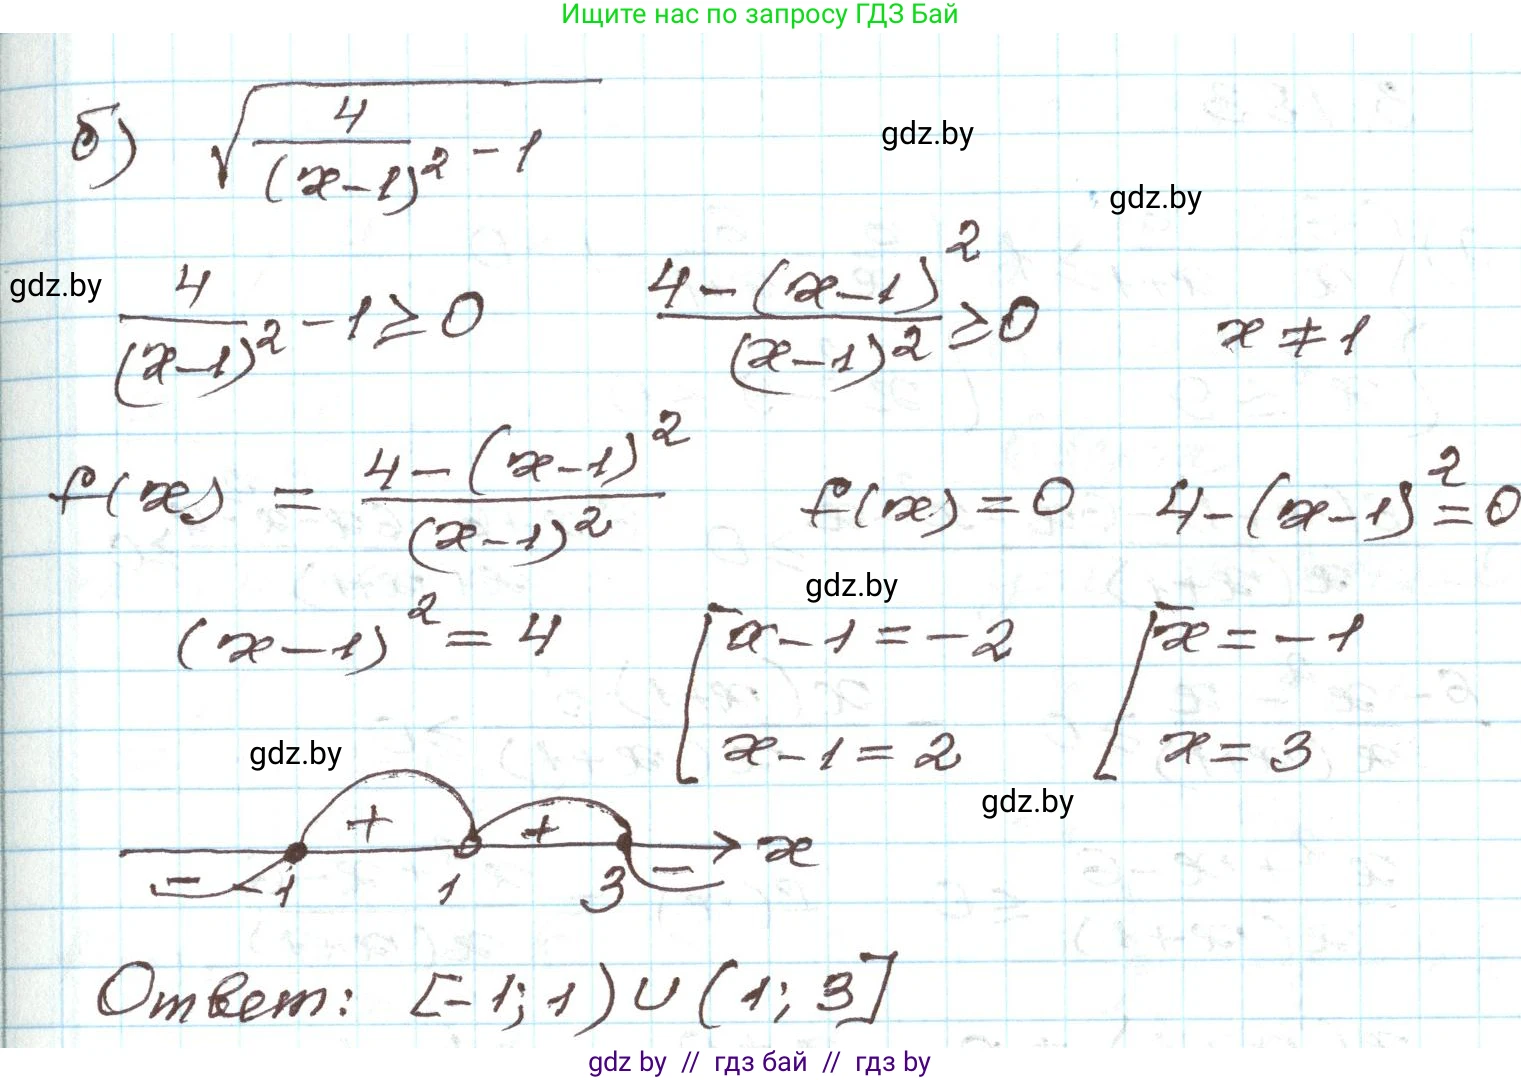 Ищите нас по запросу ГДЗ Бай
б) √(4/(x-1)² - 1)
gdz.by
gdz.by
gdz.by
4/(x-1)² - 1 ≥ 0 (4-(x-1)²)/(x-1)² ≥ 0 x ≠ 1
f(x) = (4-(x-1)²)/(x-1)² f(x) = 0 4-(x-1)² = 0
gdz.by
(x-1)² = 4 [x-1 = -2 [x = -1
x-1 = 2 x = 3
gdz.by
gdz.by
+ + x
- -1 1 3 -
Ответ: [-1; 1) ∪ (1; 3]
gdz.by // гдз бай // гдз by